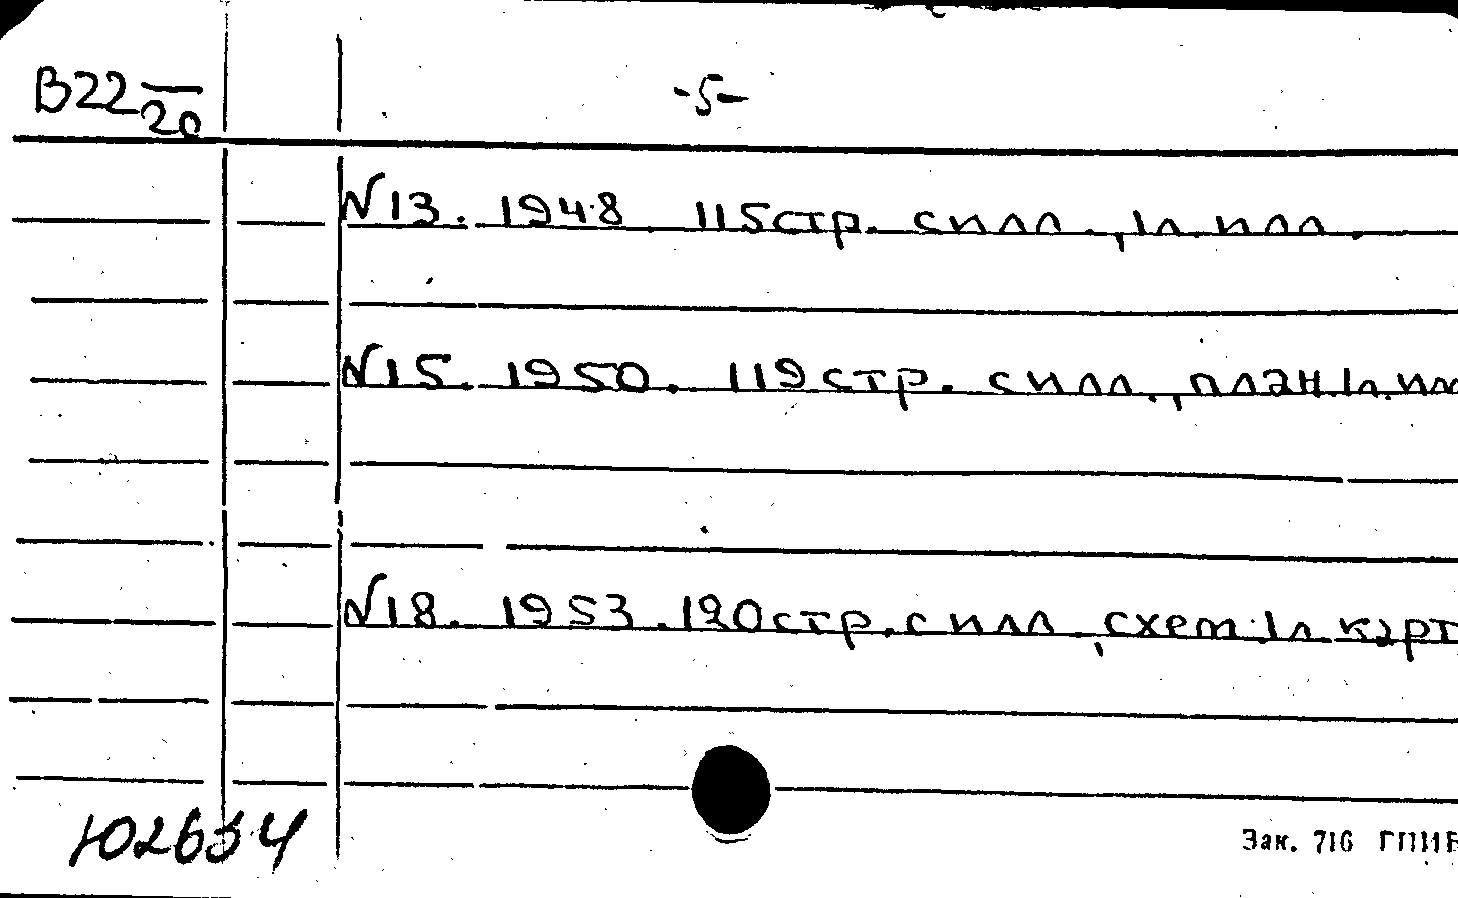 В22 20
-5-
№13. 1948 115стр. с илл., 1л. илл.
№15. 1950. 119стр. с илл., план. 1л. илл
№18. 1953. 120стр. с илл., схем. 1л карт
Ю2634
Зак. 716 ГПИБ